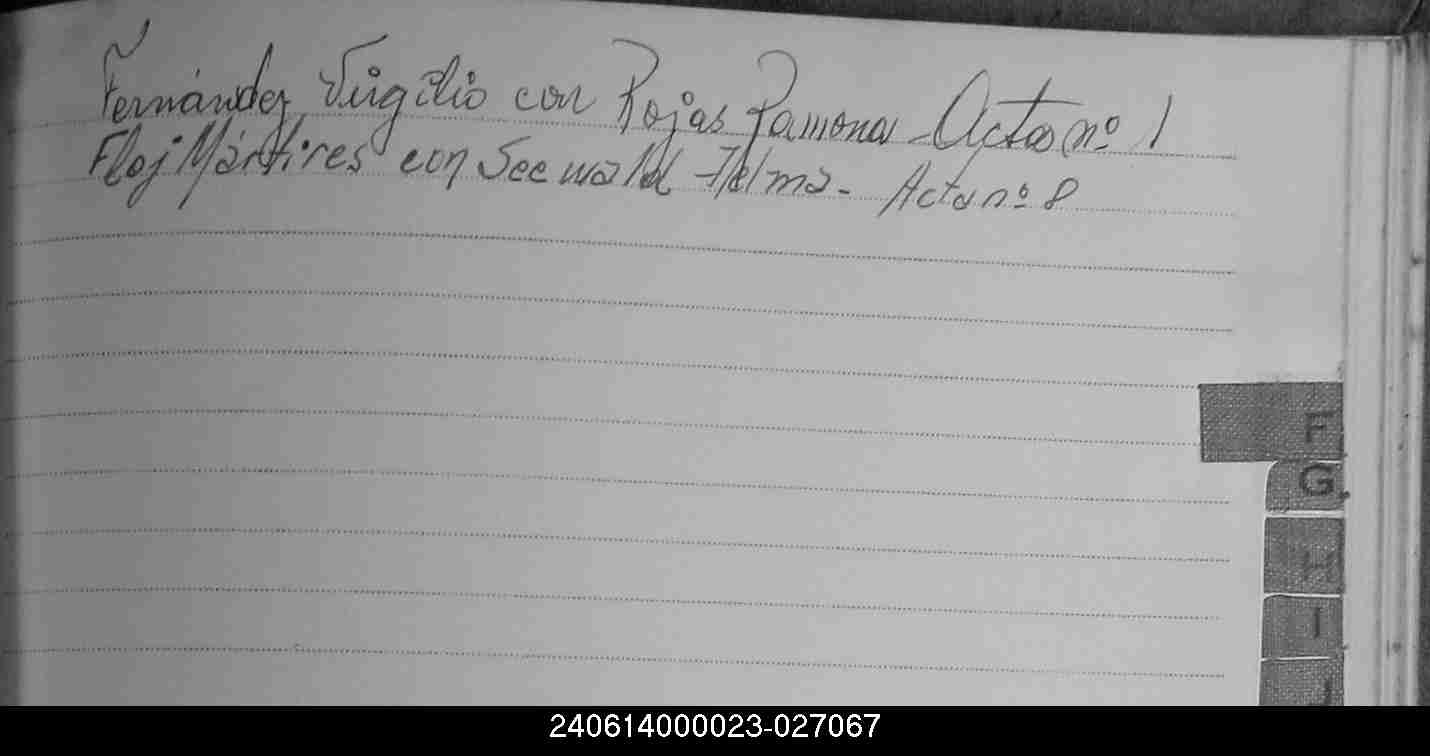 Fernández Virgilio con Rojas Ramona - Acta nº 1
Mártires con Seewald - Acta nº 8
F
G
H
I
J
240614000023-027067